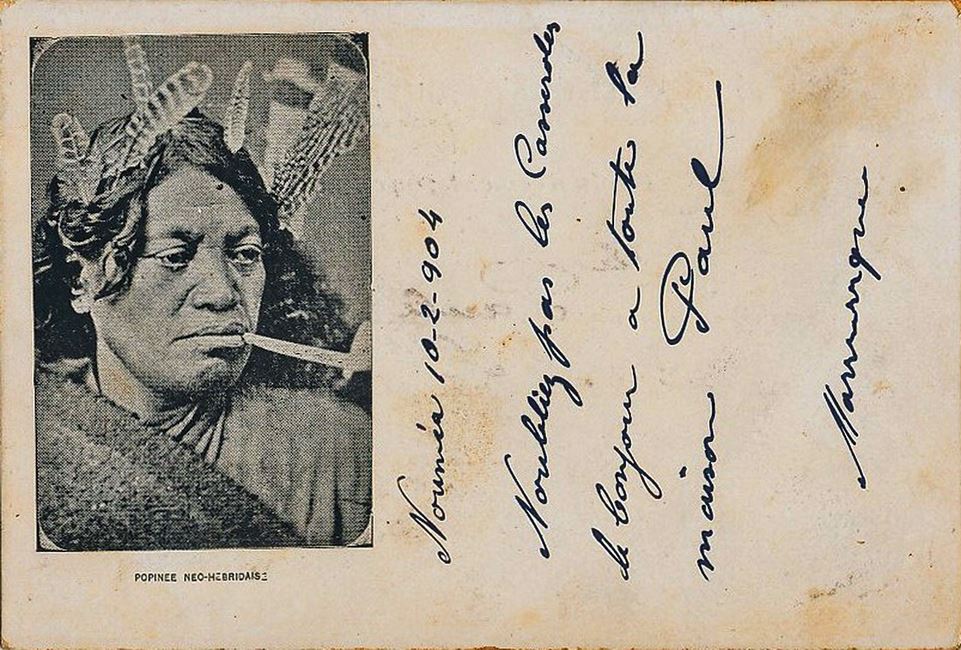 POPINEE NEO-HEBRIDAISE
Nouméa 10-2-904
Noubliez pas les Casseroles
le bonjour a toute la
maison Paul